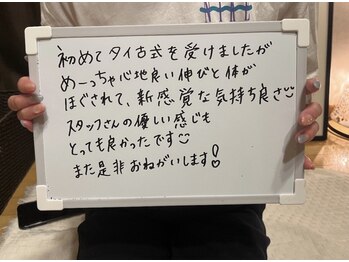 初めてタイ古式を受けましたが
めーっちゃ心地良い伸びと体が
ほぐされて、新感覚な気持ち良さ☺
スタッフさんの優しい感じも
とっても良かったです☺
また是非おねがいします!